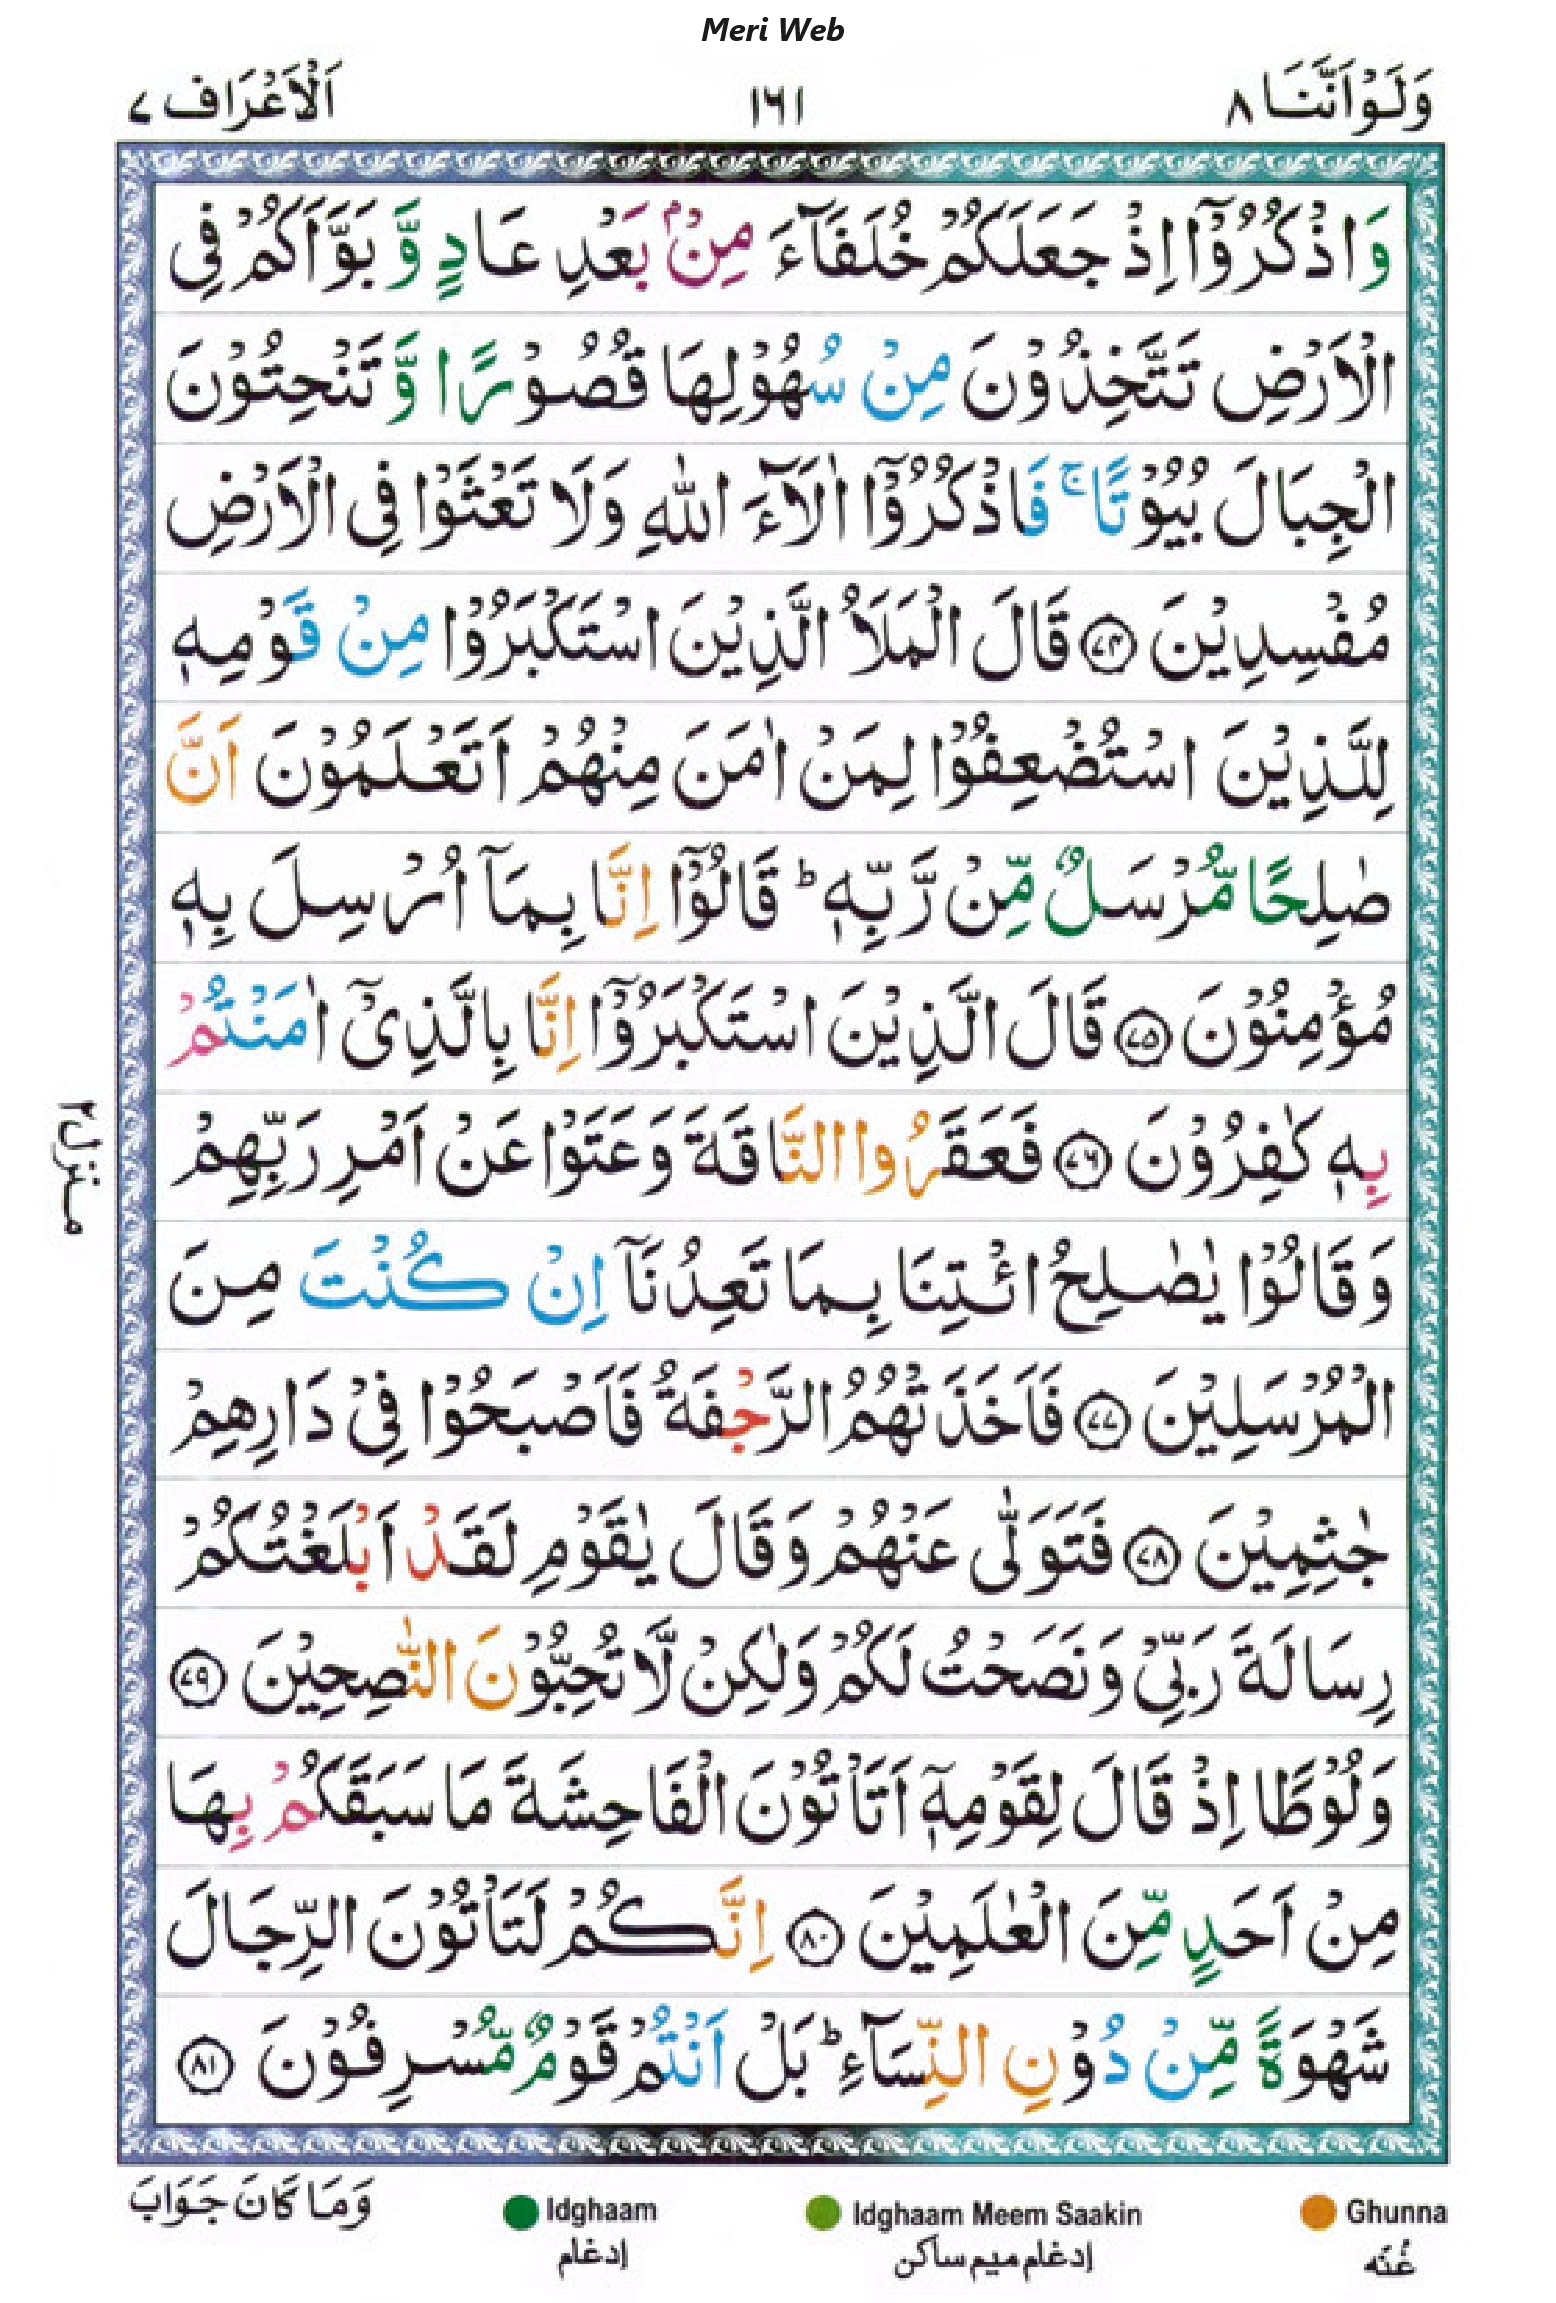 Meri Web
وَلَوْ اَنَّنَا ٨
١٦١
اَلْاَعْرَاف ٧
وَاذْكُرُوْۤا اِذْ جَعَلَكُمْ خُلَفَآءَ مِنْۢ بَعْدِ عَادٍ وَّ بَوَّاَكُمْ فِی
الْاَرْضِ تَتَّخِذُوْنَ مِنْ سُهُوْلِهَا قُصُوْرًا وَّ تَنْحِتُوْنَ
الْجِبَالَ بُيُوْتًا ۚ فَاذْكُرُوْۤا اٰلَآءَ اللّٰهِ وَلَا تَعْثَوْا فِی الْاَرْضِ
مُفْسِدِيْنَ ۝۷۴ قَالَ الْمَلَاُ الَّذِيْنَ اسْتَكْبَرُوْا مِنْ قَوْمِهٖ
لِلَّذِيْنَ اسْتُضْعِفُوْا لِمَنْ اٰمَنَ مِنْهُمْ اَتَعْلَمُوْنَ اَنَّ
صٰلِحًا مُّرْسَلٌ مِّنْ رَّبِّهٖ ؕ قَالُوْۤا اِنَّا بِمَاۤ اُرْسِلَ بِهٖ
مُؤْمِنُوْنَ ۝۷۵ قَالَ الَّذِيْنَ اسْتَكْبَرُوْۤا اِنَّا بِالَّذِیْۤ اٰمَنْتُمْ
بِهٖ كٰفِرُوْنَ ۝۷۶ فَعَقَرُوا النَّاقَةَ وَعَتَوْا عَنْ اَمْرِ رَبِّهِمْ
وَقَالُوْا يٰصٰلِحُ ائْتِنَا بِمَا تَعِدُنَاۤ اِنْ كُنْتَ مِنَ
الْمُرْسَلِيْنَ ۝۷۷ فَاَخَذَتْهُمُ الرَّجْفَةُ فَاَصْبَحُوْا فِیْ دَارِهِمْ
جٰثِمِيْنَ ۝۷۸ فَتَوَلّٰی عَنْهُمْ وَقَالَ يٰقَوْمِ لَقَدْ اَبْلَغْتُكُمْ
رِسَالَةَ رَبِّیْ وَنَصَحْتُ لَكُمْ وَلٰكِنْ لَّا تُحِبُّوْنَ النّٰصِحِيْنَ ۝۷۹
وَلُوْطًا اِذْ قَالَ لِقَوْمِهٖۤ اَتَاْتُوْنَ الْفَاحِشَةَ مَا سَبَقَكُمْ بِهَا
مِنْ اَحَدٍ مِّنَ الْعٰلَمِيْنَ ۝۸۰ اِنَّكُمْ لَتَاْتُوْنَ الرِّجَالَ
شَهْوَةً مِّنْ دُوْنِ النِّسَآءِ ؕ بَلْ اَنْتُمْ قَوْمٌ مُّسْرِفُوْنَ ۝۸۱
منزل ۲
وَمَا كَانَ جَوَابَ
Idghaam
إدغام
Idghaam Meem Saakin
إدغام ميم ساكن
Ghunna
غُنّه